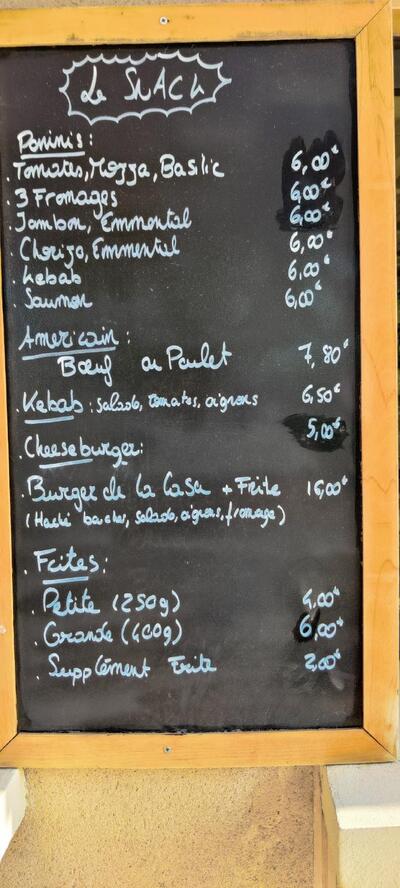 Le SNACK
Paninis :
. Tomates, Mozza, Basilic 6,00€
. 3 Fromages 6,00€
. Jambon, Emmental 6,00€
. Chorizo, Emmental 6,00€
. Kebab 6,00€
. Saumon 6,00€
Americain :
Bœuf ou Poulet 7,80€
. Kebab : salade, tomates, oignons 6,50€
. Cheeseburger : 5,00€
. Burger de la Casa + Frite 16,00€
(Haché boucher, salade, oignons, fromage)
. Frites :
. Petite (250g) 4,00€
. Grande (400g) 6,00€
. Supplément Frite 2,00€